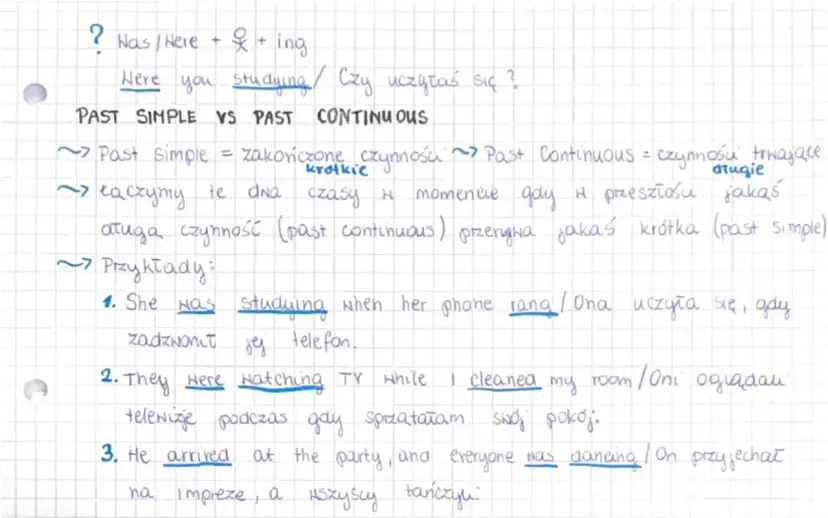 ? Was/Were + + ing
Were you studying / Czy uczyłaś się?
PAST SIMPLE VS PAST CONTINUOUS
~> Past Simple = zakończone czynności ~> Past Continuous = czynności trwające
krótkie długie
~> Łączymy te dwa czasy w momencie gdy w przeszłości jakąś
długą czynność (past continuous) przerywa jakaś krótka (past simple)
~> Przykłady:
1. She was studying when her phone rang / Ona uczyła się, gdy
zadzwonił jej telefon.
2. They were watching TV while I cleaned my room / Oni oglądali
telewizję podczas gdy sprzątałam swój pokój.
3. He arrived at the party, and everyone was dancing / On przyjechał
na imprezę, a wszyscy tańczyli.